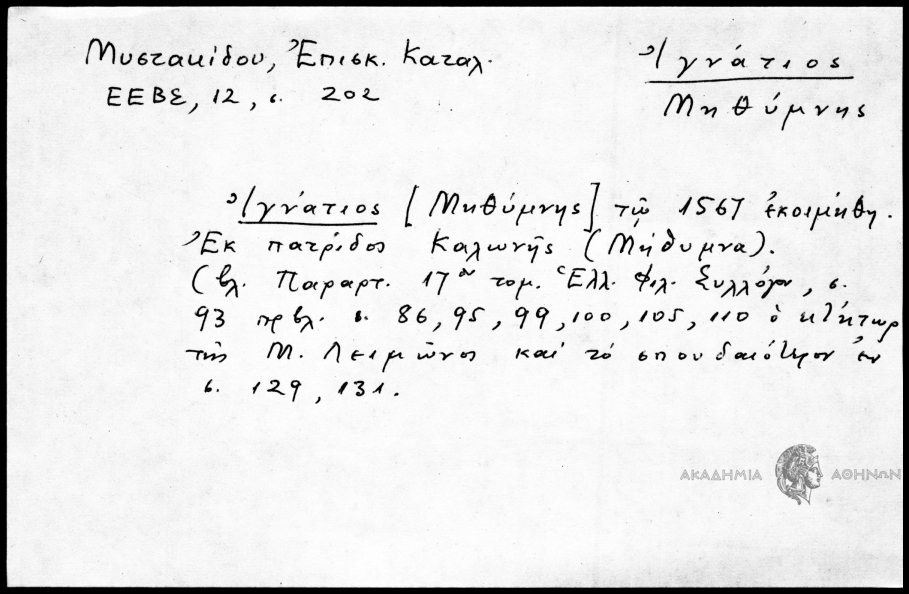 Μυστακίδου, Ἐπισκ. Καταλ.
ΕΕΒΣ, 12, σ. 202
Ἰγνάτιος
Μηθύμνης
Ἰγνάτιος [Μηθύμνης] τῷ 1567 ἐκοιμήθη.
Ἐκ πατρίδος Καλωνῆς (Μήθυμνα).
(βλ. Παραρτ. 17ου τομ. Ἑλλ. Φιλ. Συλλόγου, σ.
93 πρβλ. σ. 86, 95, 99, 100, 105, 110 ὁ κτήτωρ
τῆς Μ. Λειμῶνος καὶ τὸ σπουδαιότερον ἐν
σ. 129, 131.
ΑΚΑΔΗΜΙΑ ΑΘΗΝΩΝ